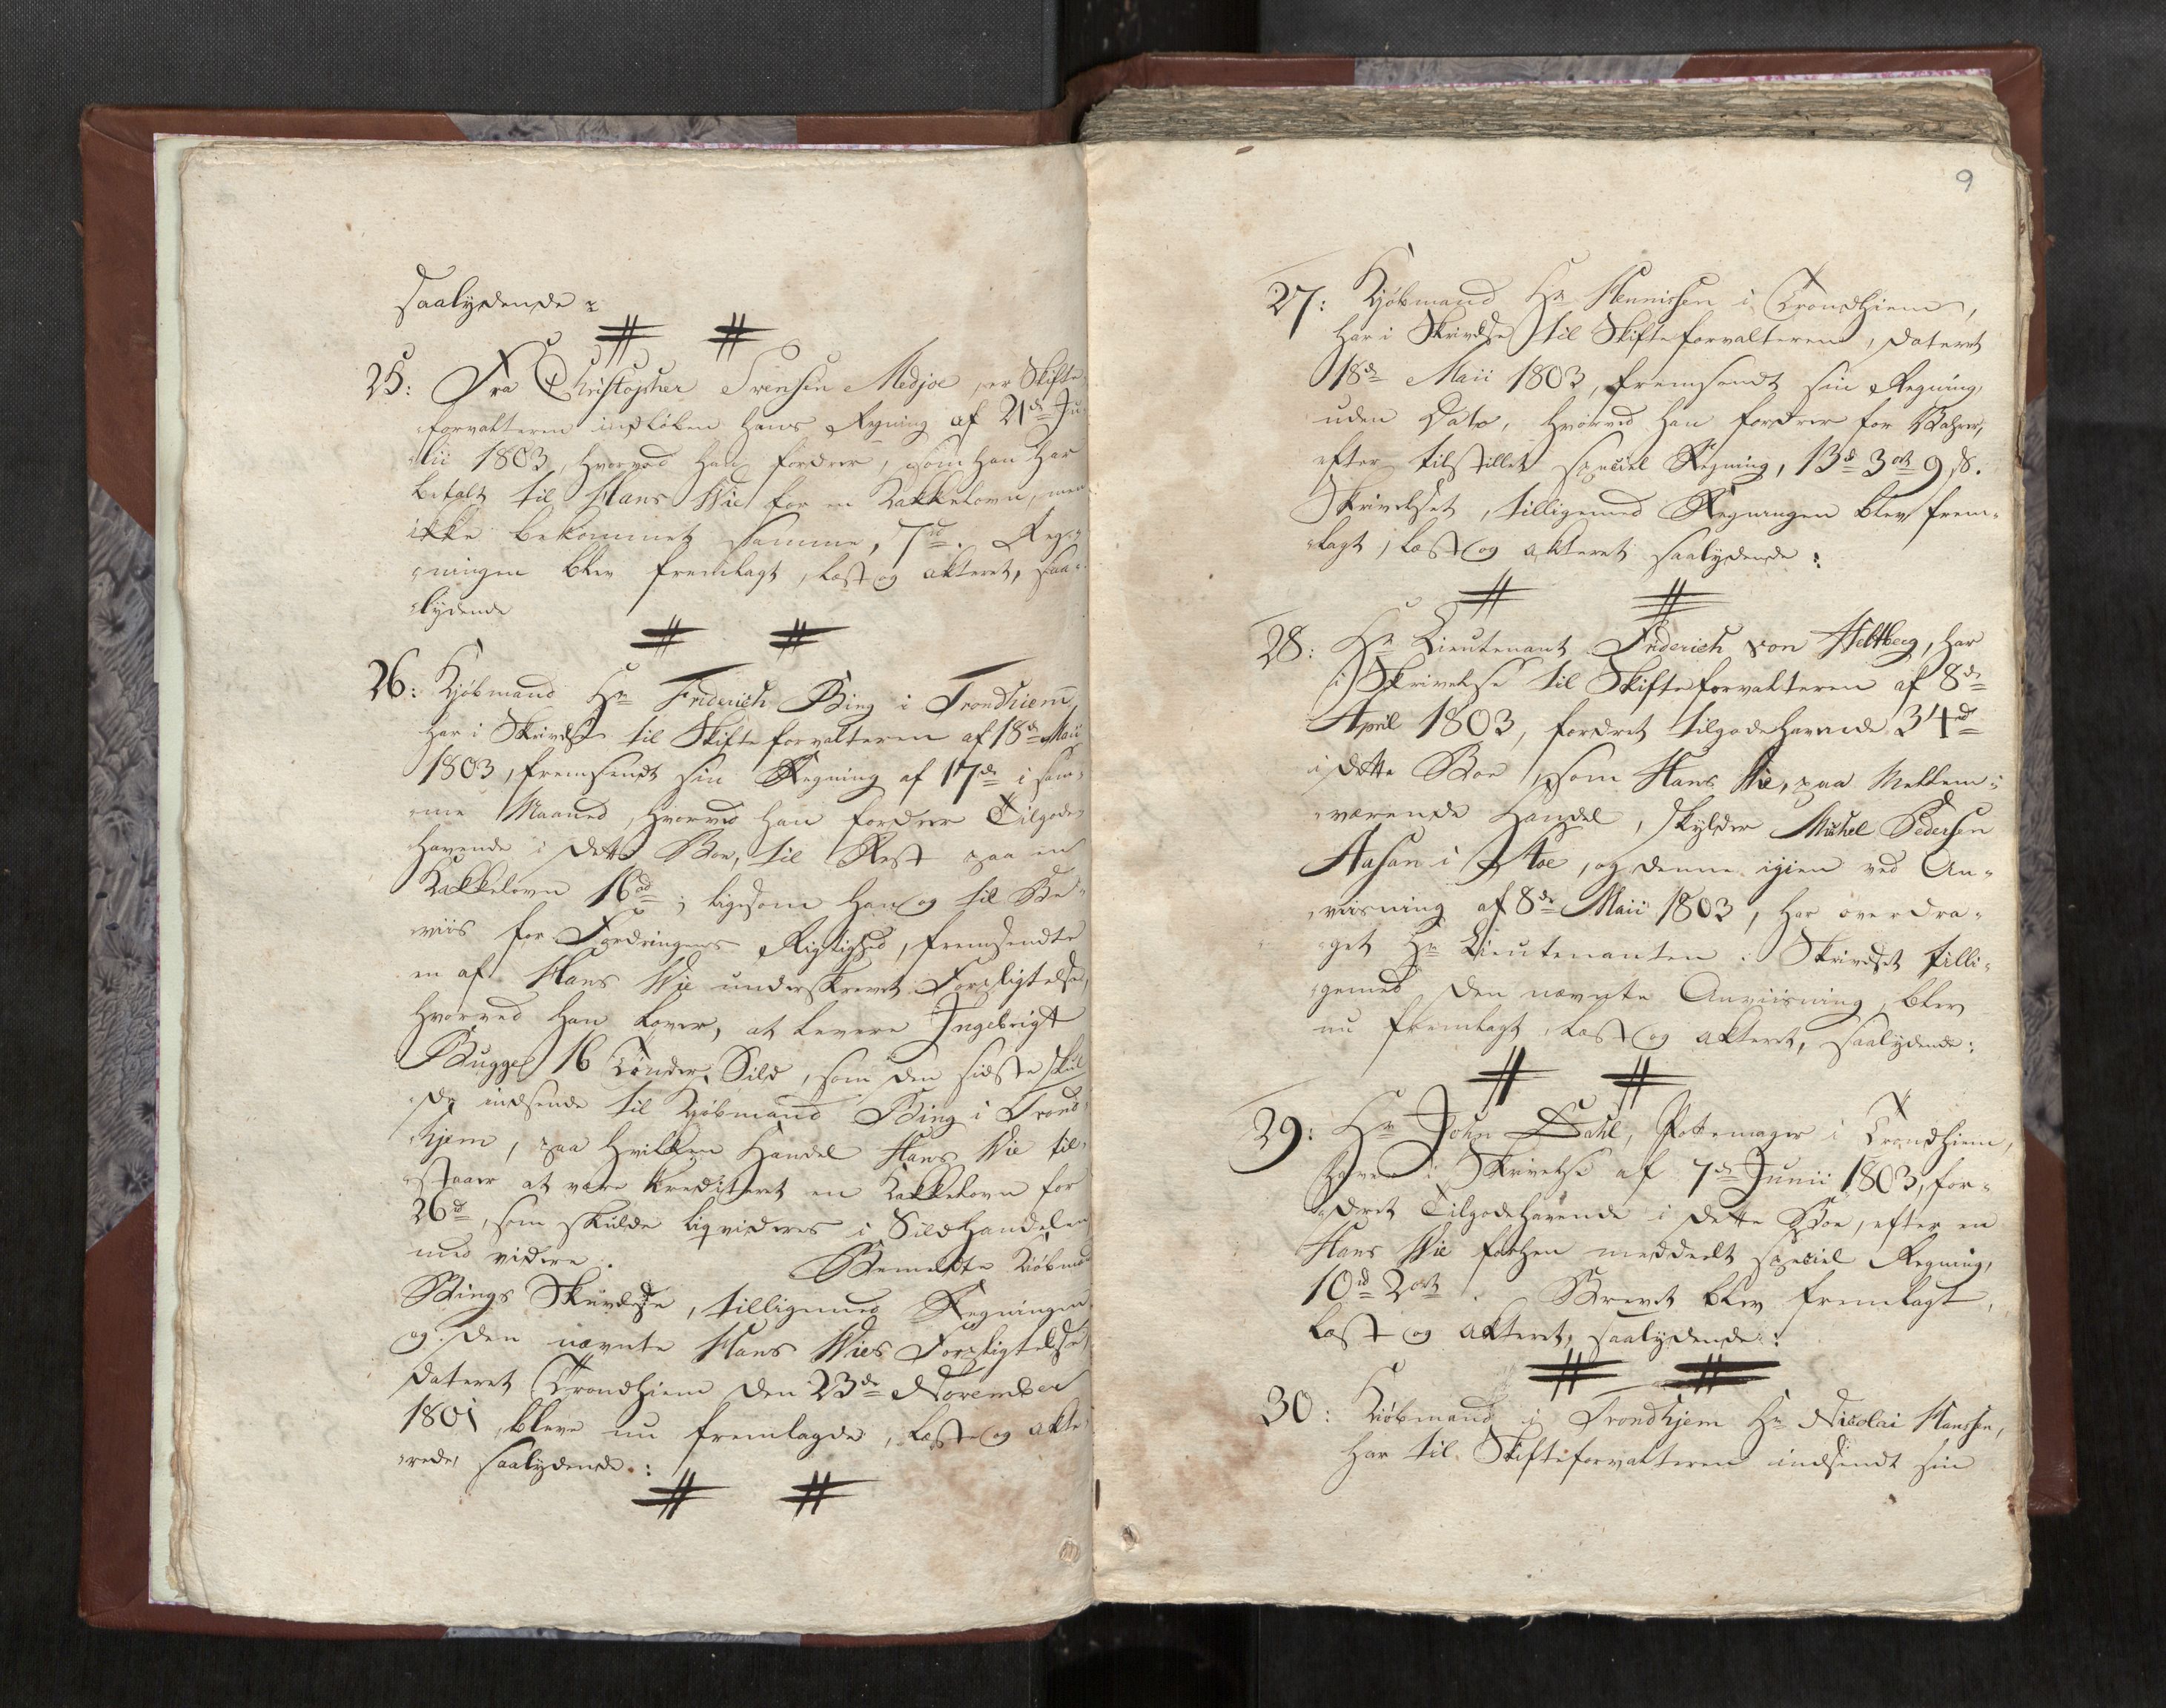 saalydende :
# #
25: Fra Christopher Svensen Medjoe, er Skifte-
forvalteren indløben hans Regning af 21de Ju-
lii 1803, hvorved han fordrer, som han har
betalt til Hans Wie for en Kakkelovn, men
ikke bekommet samme, 7rd. Reg-
ningen blev fremlagt, læst og akteret, saa-
lydende
# #
26: Kjøbmand Hr Friderich Bing i Trondhiem,
har i Skrivelse til Skifteforvalteren af 18de Maii
1803, fremsendt sin Regning af 17de i sam-
me Maaned, hvorved han fordrer Tilgode-
havende i dette Boe, til Rest paa en
Kakkelovn 16rd; ligesom han og til Be-
viis for Fordringens Rigtighed, fremsendte
en af Hans Wie underskrevet Forpligtelse,
hvorved han lover, at levere Ingebrigt
Bugge 16 Tønder Sild, som den sidste skul-
de indsende til Kjøbmand Bing i Trond-
hjem, paa hvilken Handel Hans Wie til-
staaer at være krediteret en Kakkelovn for
26rd, som skulde liqvideres i Sildhandelen
med videre. Bemeldte Kiøbmand
Bings Skrivelse, tilligemed Regningen
og den nævnte Hans Wies Forpligtelse,
dateret Trondhiem den 23de November
1801, bleve nu fremlagde, læste og akte-
rede, saalydende :
# #
9
27: Kjøbmand Hr Hennissen i Trondhiem,
har i Skrivelse til Skifteforvalteren, dateret
18de Maii 1803, fremsendt sin Regning,
uden Dato, hvorved han fordrer for Vahrer,
efter tilstillet speciel Regning, 13rd 3ort 9 s.
Skrivelset, tilligemed Regningen blev frem-
lagt, læst og akteret saalydende :
# #
28: Hr Lieutenant Friderich von Heltberg, har
i Skrivelse til Skifteforvalteren af 8de
April 1803, fordret tilgodehavende 34rd
i dette Boe, som Hans Wie, paa Mellem-
værende Handel, skylder Michel Pedersen
Aasan i Stoe, og denne igien ved An-
viisning af 8de Maii 1803, har overdra-
get Hr Lieutenanten : Skrivelset tilli-
gemed den nævnte Anviisning, blev
nu fremlagt, læst og akteret, saalydende :
# #
29: Hr John Dahl, Pottemager i Trondhiem,
haver i Skrivelse af 7de Junii 1803, for-
dret Tilgodehavende i dette Boe, efter en
Hans Wie forhen meddeelt speciel Regning,
10rd 2ort. Brevet blev fremlagt,
læst og akteret, saalydende :
# #
30: Kiøbmand i Trondhjem Hr Nicolai Hanssen,
har til Skifteforvalteren indsendt sin